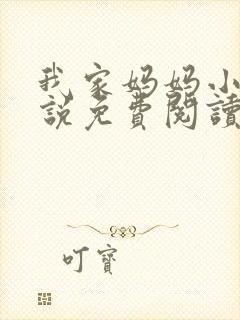 我家妈妈小
说免費閱讀
叮寶